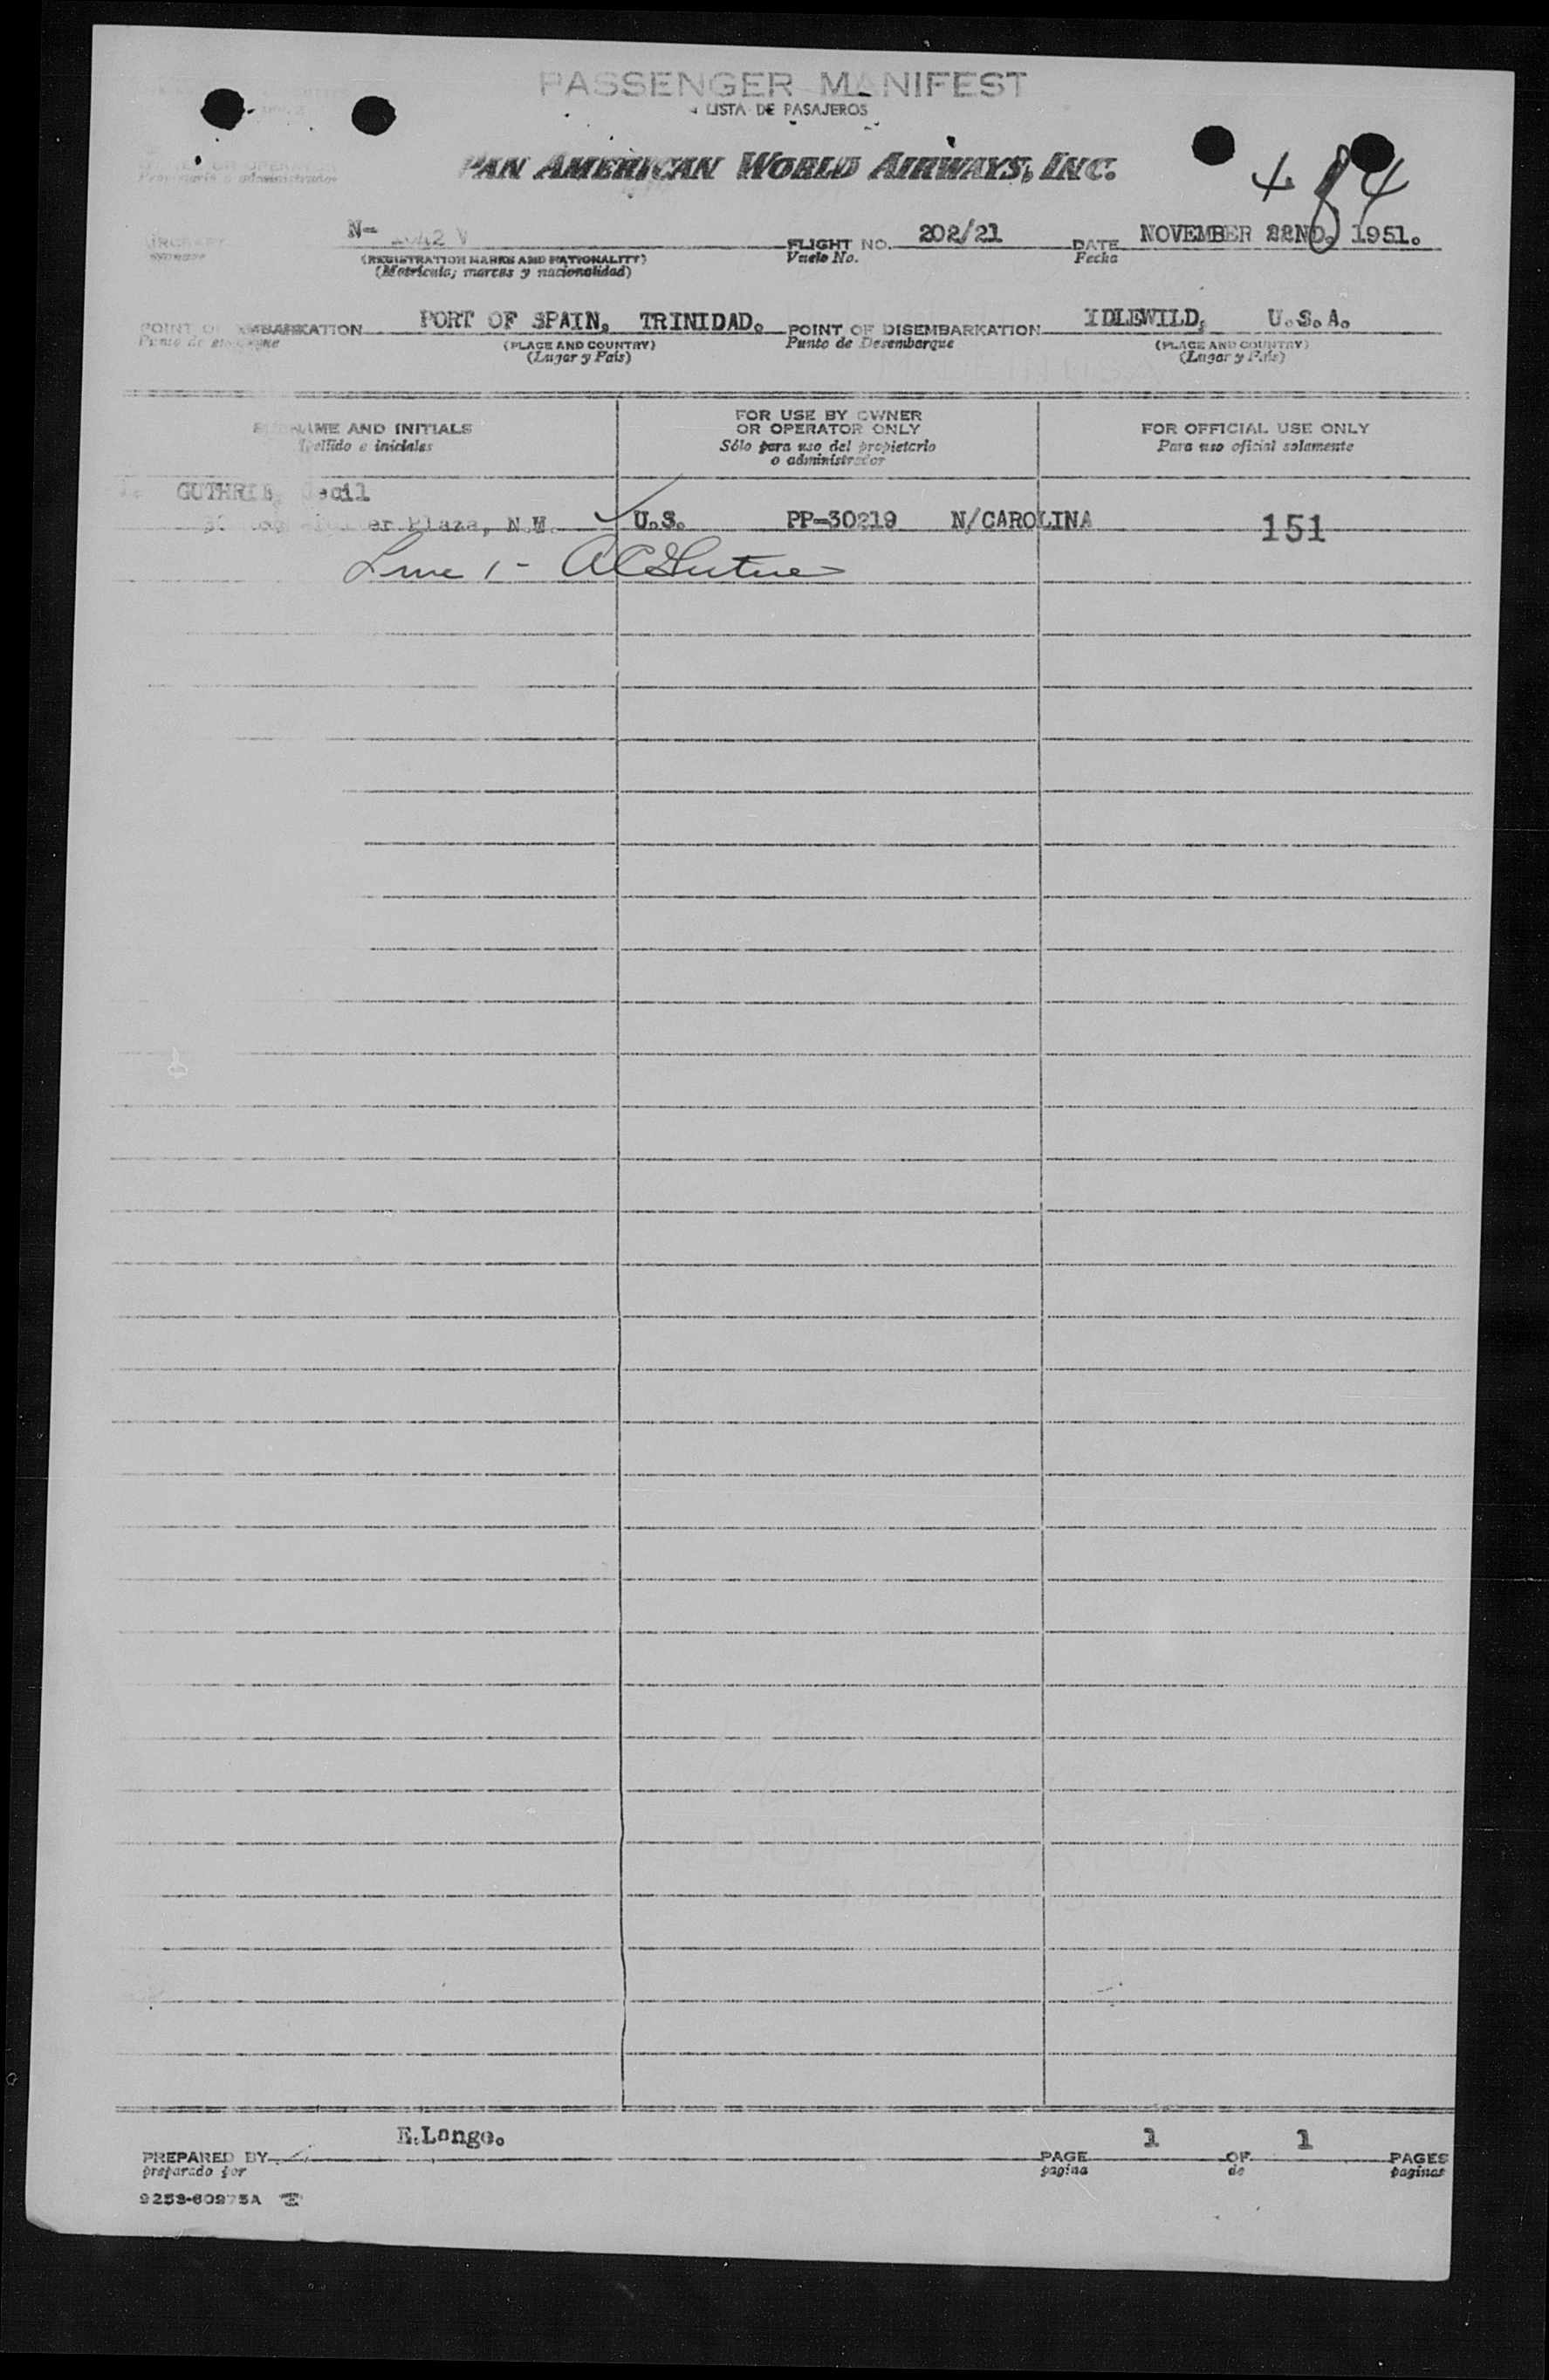 PASSENGER MANIFEST
LISTA DE PASAJEROS
PAN AMERICAN WORLD AIRWAYS, INC.
484
N- 2 V FLIGHT NO. 202/21 DATE NOVEMBER 22ND, 1951.
(REGISTRATION MARKS AND NATIONALITY) Vuelo No. Fecha
(Matrícula; marcas y nacionalidad)
POINT OF EMBARKATION PORT OF SPAIN, TRINIDAD. POINT OF DISEMBARKATION IDLEWILD, U.S.A.
Punto de (PLACE AND COUNTRY) Punto de Desembarque (PLACE AND COUNTRY)
(Lugar y País) (Lugar y País)
SURNAME AND INITIALS FOR USE BY OWNER OR OPERATOR ONLY FOR OFFICIAL USE ONLY
Apellido e iniciales Sólo para uso del propietario o administrador Para uso oficial solamente
GUTHRIE, Cecil
er Plaza, N.Y. U.S. PP-30219 N/CAROLINA 151
Line 1 - AC Guthrie
E.Longo.
PREPARED BY PAGE 1 OF 1 PAGES
preparado por pagina de paginas
9253-60975A